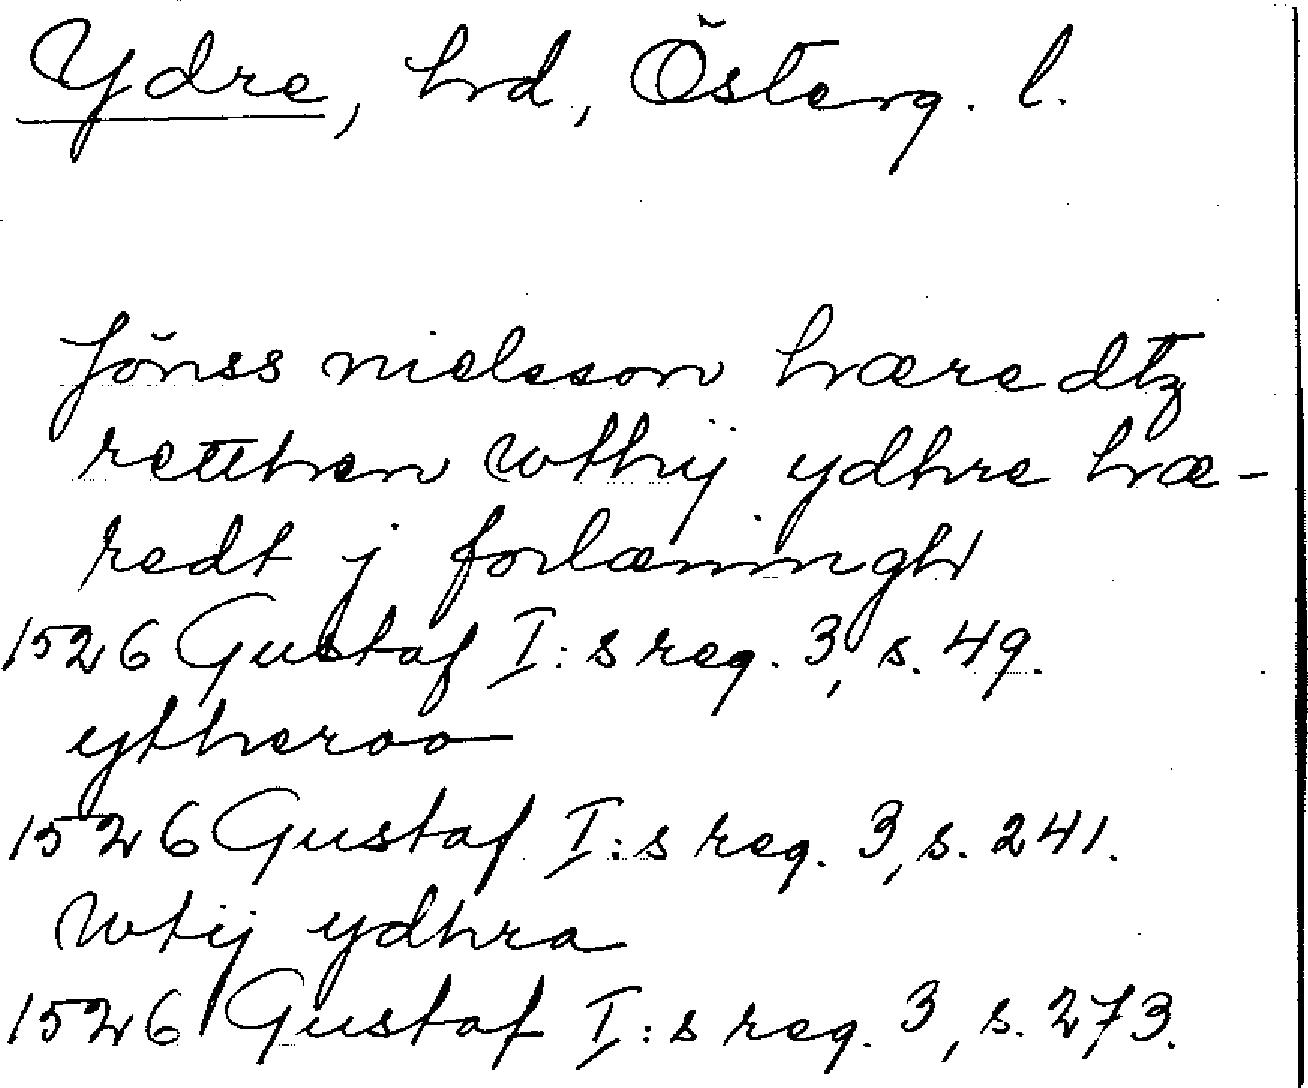 Ydre, hrd, Österg. l.
Jönss nielsson hæredtz
retthen wthij ydhre hæ-
redt j forlæningh
1526 Gustaf I:s reg. 3, s. 49.
ytheroo
1526 Gustaf I:s reg. 3, s. 241.
Wtij ydhra
1526 Gustaf I:s reg. 3, s. 273.